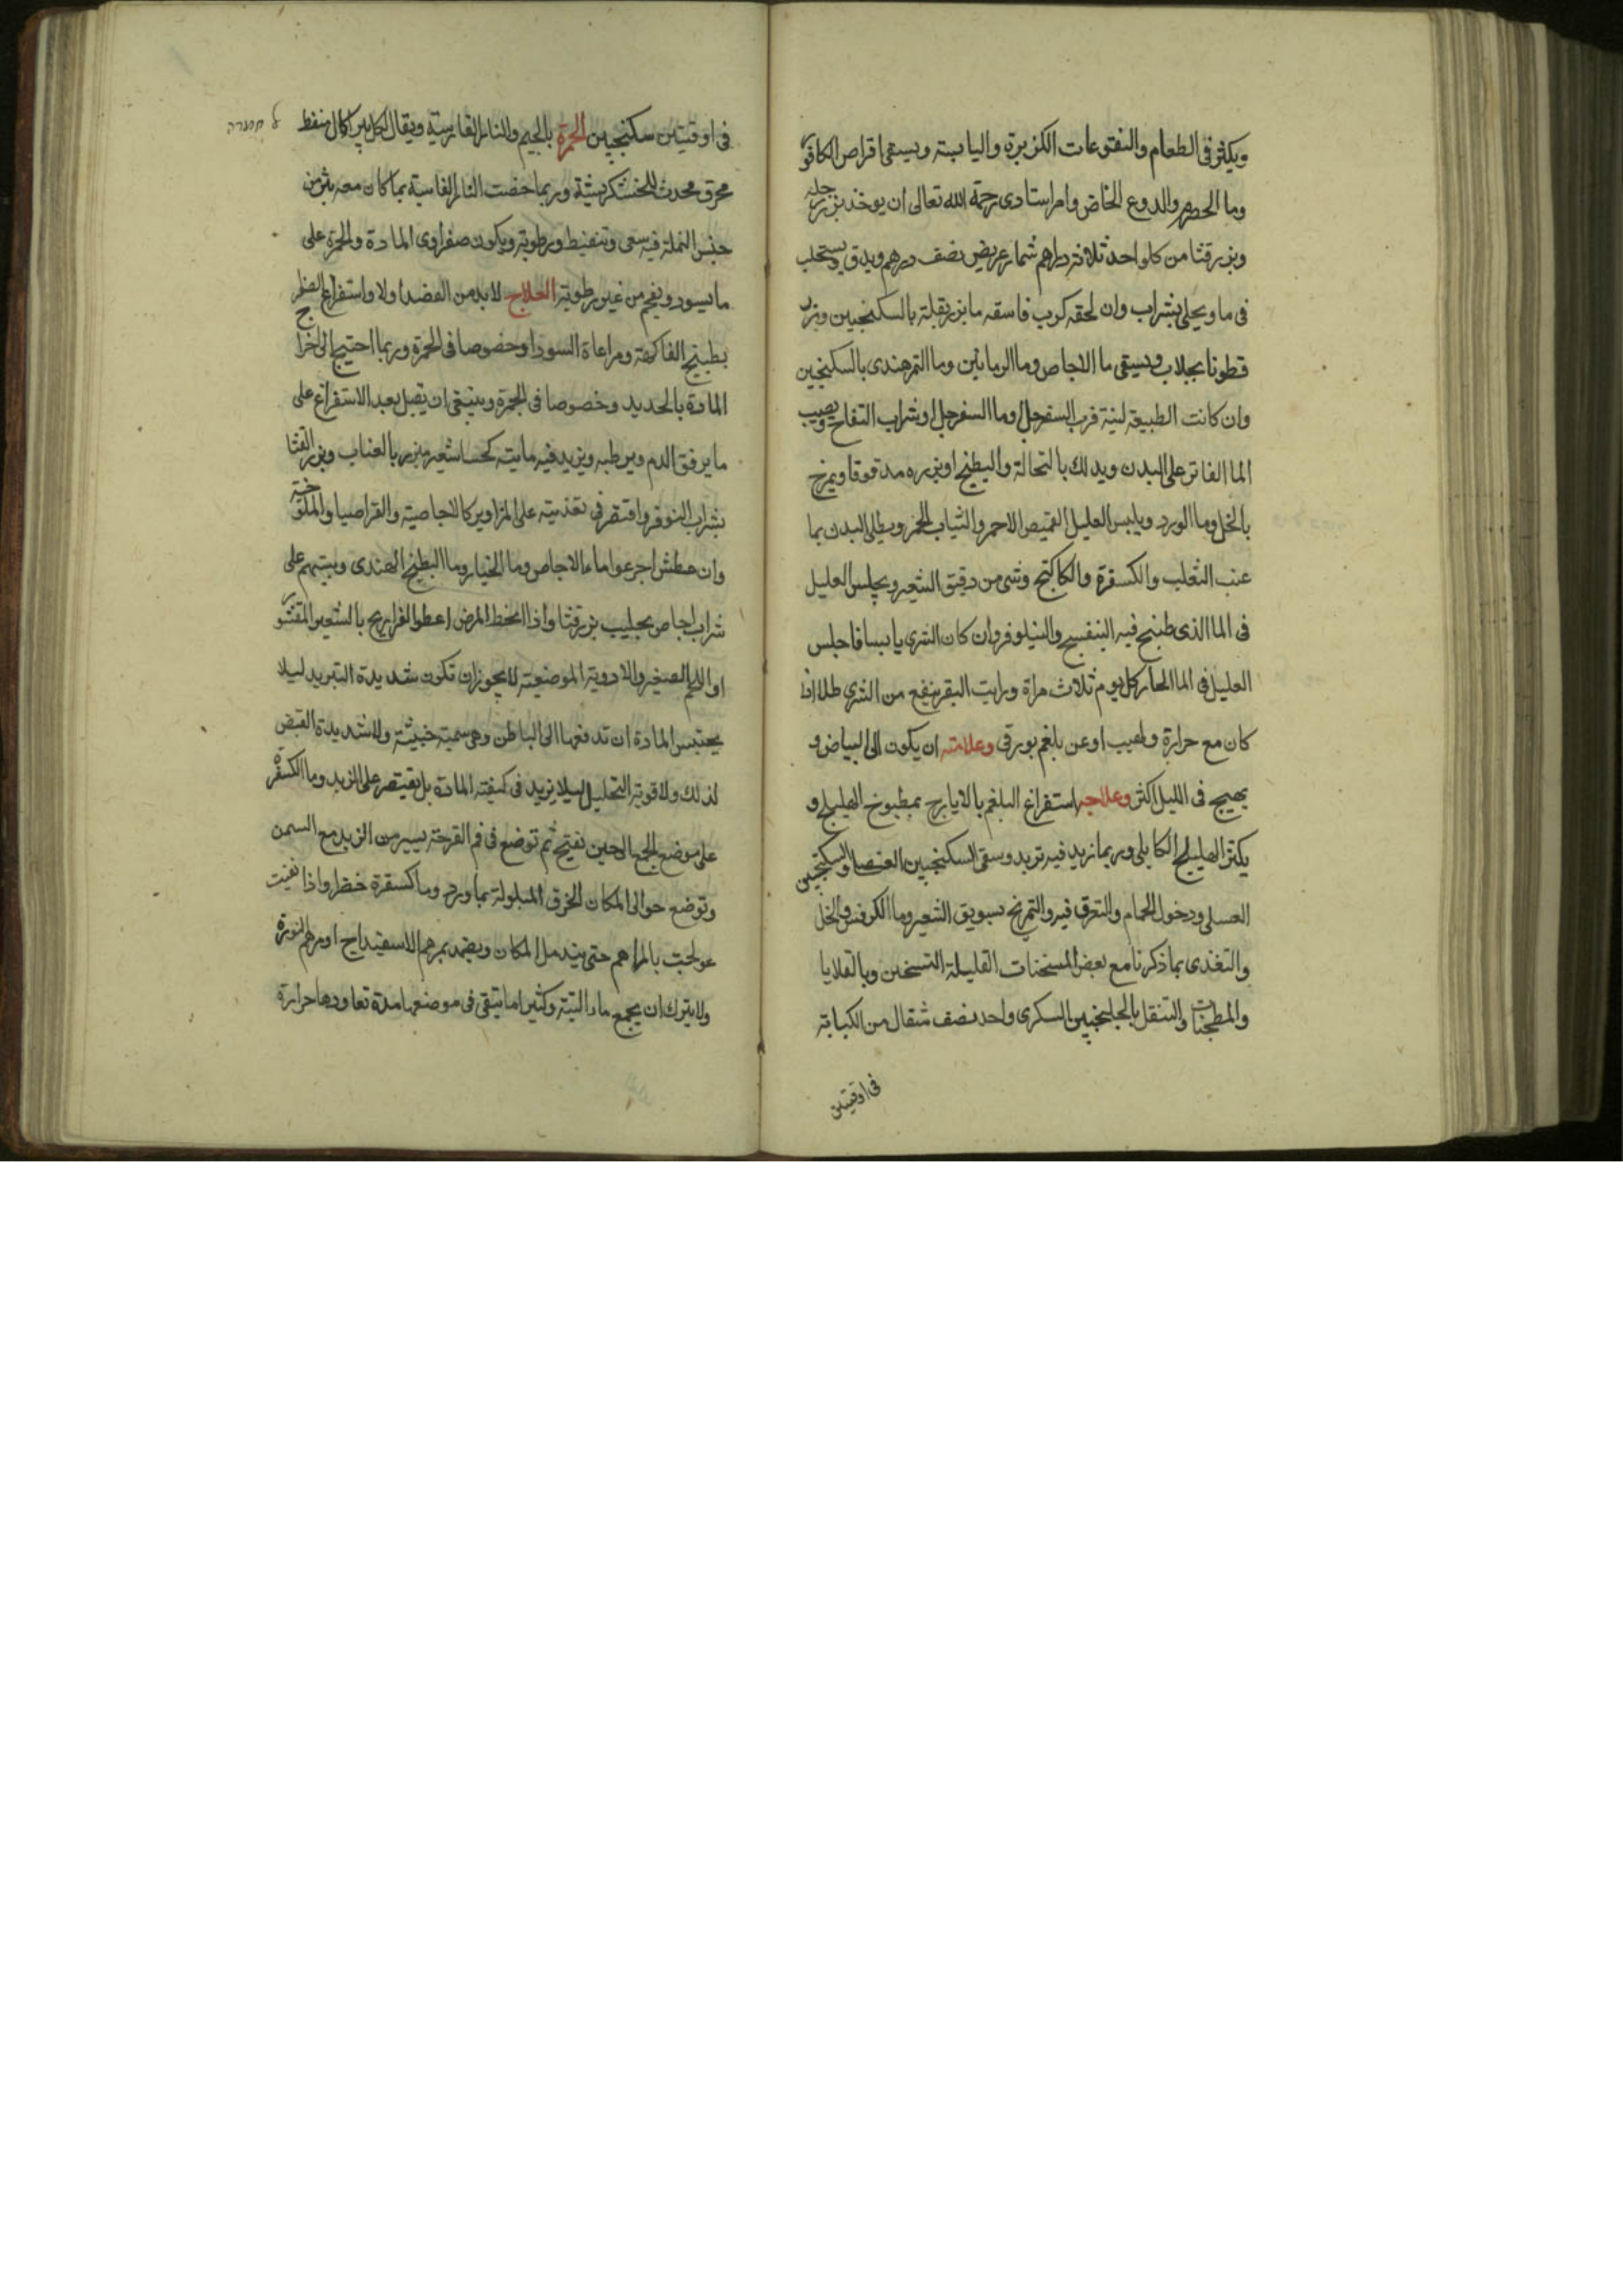 ويكثر فى الطعام والنقوعات الكزبرة واليابسة ويسقى اقراص الكافور
وما الحصرم والدوع الحامض وامر استادى رحمة الله تعالى ان يوخذ بزر رجله
وبزر قثا من كل واحد ثلاثة دراهم شمار عريض نصف درهم ويدق ويستحلب
فى ما ويحلى بشراب وان لحقه كرب فاسقه ما بزر بقلة بالسكنجبين وبزر
قطونا بجلاب ويسقى ما الاجاص وما الرمانين وما التمرهندى بالسكنجبين
وان كانت الطبيعة لنية فرب السفرجل وما السفرجل او شراب التفاح ويصب
الما الفاتر على البدن ويدلك بالنحالة والبطيخ او بزره مدقوقا ويمرخ
بالخل وما الورد ويلبس العليل القميص الاحمر والثياب الحمر ويطلى البدن بما
عنب الثعلب والكسفرة والكاكنج وشى من دقيق الشعير ويجلس العليل
فى الما الذى طبخ فيه البنفسج والنيلوفر وان كان الشرى يابسا فاجلس
العليل فى الما الحار كل يوم ثلاث مراة ورايت البقر ينفع من الشرى طلا اذا
كان مع حرارة ولهيب او عن بلغم بورقى وعلامته ان يكون الى البياض و
يهيج فى الليل اكثر وعلاجه استفراغ البلغم بالايارج بمطبوخ الهليلج و
يكثر الهليلج الكابلى وربما زيد فيه تربد وسقى السكنجبين العنصلى والسكنجبين
العسلى ودخول الحمام والتعرق فيه والتمريخ بسويق الشعير وما الكرفس والخل
والتغذى بما ذكرنا مع بعض المسخنات القليلة التسخين وبالقلايا
والمطجنات والتنقل بالجلنجبين السكرى واحد نصف مثقال من الكبابة
فى اوقيتين
فى اوقيتين سكنجبين الجمرة بالجيم والنار الفارسية ويقال لكل بثر اكال منفط
محرق محدث للخشكريشة وربما خصت النار الفاسية بما كان معه بثر من
جنس النملة فيه سعى وتنفيط ورطوبة ويكون صفراوى المادة والجمرة على
ما يسود ويفحم من غير رطوبة العلاج لا بد من الفصد اولا واستفراغ الصفرا
بطبيخ الفاكهة ومراعاة السودا وخصوصا فى الجمرة وربما احتيج الى اخراج
المادة بالحديد وخصوصا فى الجمرة وينبغى ان يقبل بعد الاستفراغ على
ما يرفق الدم ويرطبه ويزيد فيه مايته كحسا شعير مبزر بالعناب وبزر القثا
بشراب النوفر واقتصر فى تغذيته على المزاوير كالاجاصية والقراصيا والملوخية
وان عطش اجرعوا ماء الاجاص وما الخيار وما البطيخ الهندى وبيتهم على
شراب اجاص بحليب بزر قثا واذا انحط المرض اعطوا الفراريج بالشعير المقشور
او اللحم الصغير والادوية الموضعية لا يجوز ان تكون شديدة التبريد ليلا
يحتبس المادة ان تدفعها الى الباطن وهى سمية خبيثة ولا شديدة القبض
لذلك ولا قوية التحليل ليلا يزيد فى كيفته المادة بل يقتصر على الزبد وما الكسفرة
على موضع الجمع الى حين تفتح ثم توضع فى فم القرحة يسير من الزبد مع السمن
وتوضع حوالى المكان الخرق المبلولة بما ورد وما كسفرة خضرا واذا نقيت
عولجت بالمراهم حتى يندمل المكان ويضمد بمرهم الاسفيداج او مرهم النورة
ولا يترك ان يجمع ماء التية وكثيرا ما يتبقى فى موضعها مدة تعاودها حرارة